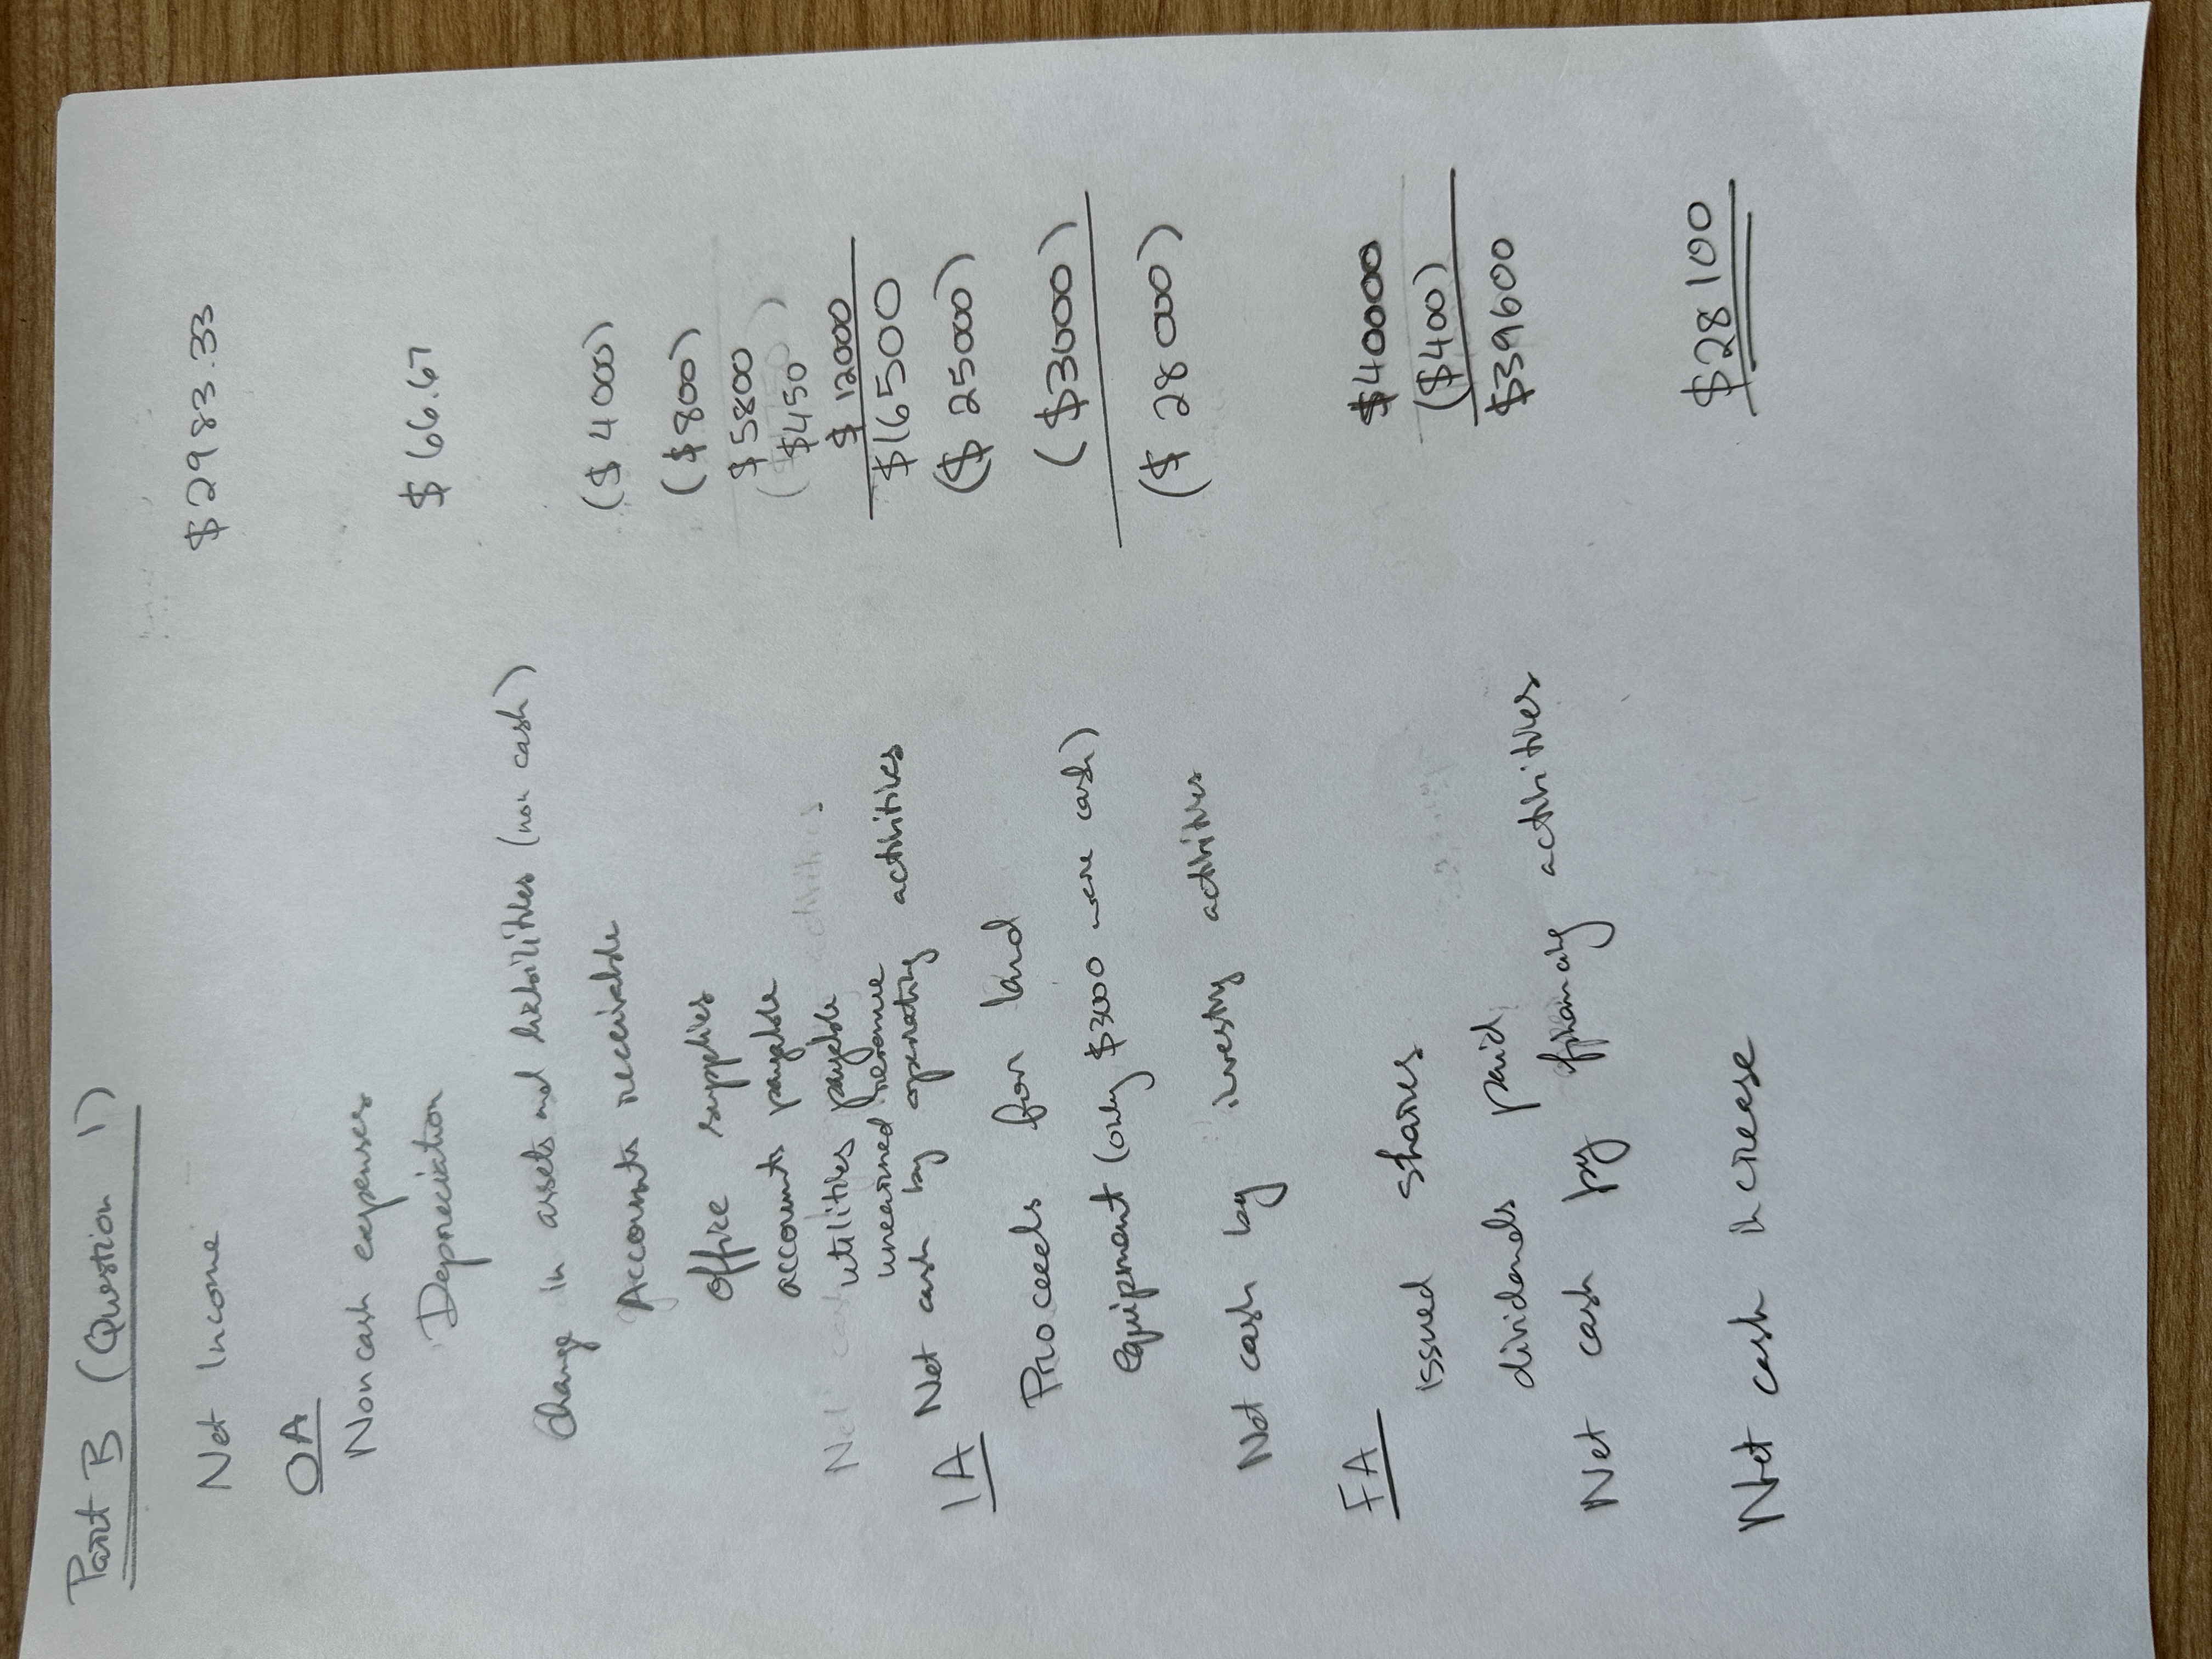 Part B (Question 1)
Net Income $2983.33
OA
Noncash expenses
Depreciation $66.67
Change in assets and liabilities (non cash)
Accounts receivable ($4000)
office supplies ($800)
accounts payable $5800
utilities payable $450
unearned revenue $12000
Net cash by operating activities $16500
IA
Proceeds for land ($25000)
equipment (only $3000 were cash) ($3000)
Net cash by investing activities ($28000)
FA
issued shares $40000
dividends paid ($400)
Net cash by financing activities $39600
Net cash increase $28100